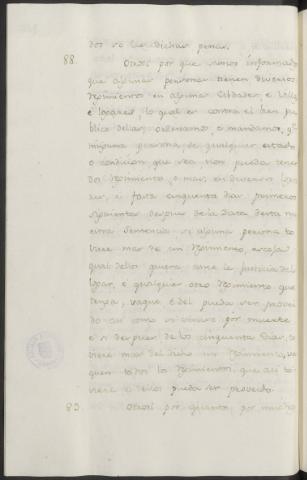 dos so las dichas penas.
88. Otrosi por que somos informados
que algunas personas tienen diversos
Regimientos en algunas Cibdades, e Villas
e logares, lo qual es contra el bien pu-
blico dellas: ordenamos, e mandamos, qe
ninguna persona, de qualquier estado
o condicion que sea non pueda tener
dos Regimientos, o mas, en diversos loga-
res, e fasta cinquenta dias primeros
siguientes despues de la data desta nu-
estra Sentencia si alguna persona to-
viere mas de un Regimiento, escoja
qual dellos quiera ante la justicia del
logar, e qualquier otro Regimiento que
tenga, vaque, e del pueda ser provei-
do asi como si vacase por muerte
e si despues de los cinquenta dias, to-
viere mas del dicho un Regimiento, va-
quen todos los Regimientos, que asi to-
viere e dellos pueda ser proveido.
89. Otrosi por quanto por muchos